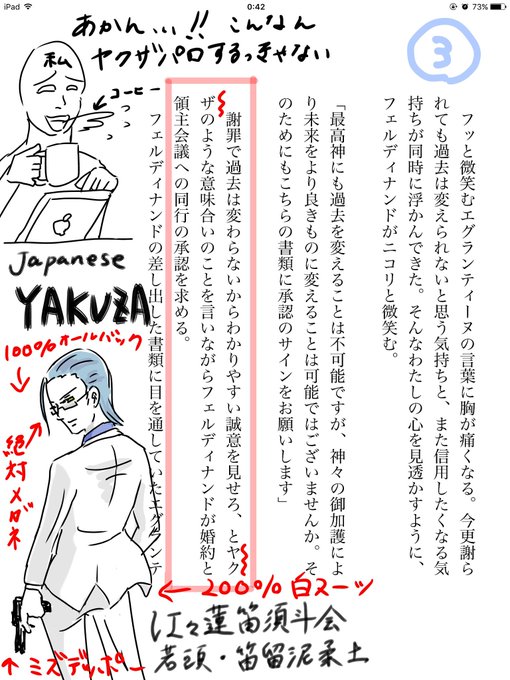 iPad 0:42 73%
あかん…!! こんなん
ヤクザパロするっきゃない
3
私
コーヒー
フッと微笑むエグランティーヌの言葉に胸が痛くなる。今更謝ら
れても過去は変えられないと思う気持ちと、また信用したくなる気
持ちが同時に浮かんできた。そんなわたしの心を見透かすように、
フェルディナンドがニコリと微笑む。
「最高神にも過去を変えることは不可能ですが、神々の御加護によ
り未来をより良きものに変えることは可能ではございませんか。そ
のためにもこちらの書類に承認のサインをお願いします」
謝罪で過去は変わらないからわかりやすい誠意を見せろ、とヤク
ザのような意味合いのことを言いながらフェルディナンドが婚約と
領主会議への同行の承認を求める。
フェルディナンドの差し出した書類に目を通していたエグランテ
Japanese
YAKUZA
100%オールバック
絶対メガネ
← 200% 白スーツ
江々蓮笛須斗会
若頭・笛留泥柔土
↑ ミズデッポー